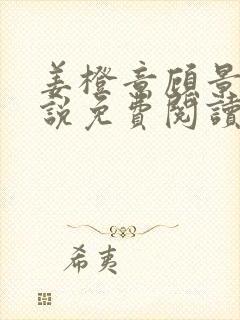 姜橙章顧景
說免費閱讀
希夷